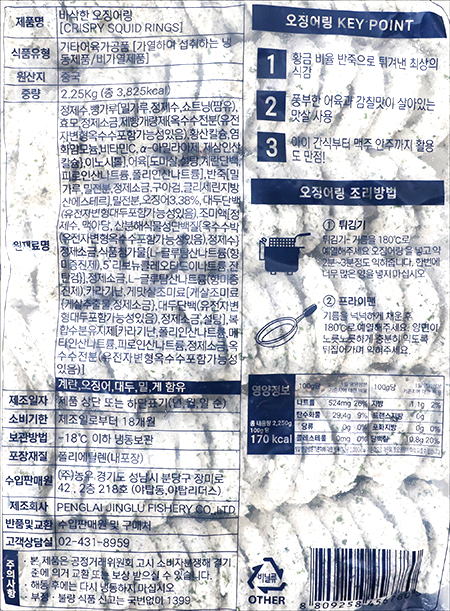 제품명
바삭한 오징어링
[CRISRY SQUID RINGS]
식품유형
기타어육가공품 [가열하여 섭취하는 냉
동제품/비가열제품]
원산지
중국
중량
2.25Kg (총 3,825kcal)
원재료명
정제수, 빵가루[밀가루,정제수,쇼트닝(팜유),
효모,정제소금,제빵개량제(옥수수전분(유전
자변형옥수수포함가능성있음),황산칼슘,염
화암모늄,비타민C, α-아밀라아제,제삼인산
칼슘),이노시톨],어육[도미살,설탕,계란단백,
피로인산나트륨,폴리인산나트륨], 반죽[밀가
루, 밀전분, 정제소금,구아검,글리세린지방
산에스테르],밀전분,오징어3.38%, 대두단백
(유전자변형대두포함가능성있음),조미액[정
제수,맥아당,산분해식물성단백질(옥수수박
(유전자변형옥수수포함가능성있음),정제수)
정제소금,식품첨가물(L-글루탐산나트륨(향
미증진제),5'리보뉴클레오티드이나트륨,잔
탄검)],정제소금,L-글루탐산나트륨(향미증
진제),카라기난,게맛살조미료[게살조미료
(게살추출물,정제소금), 대두단백(유전자변
형대두포함가능성있음), 정제소금,설탕],복
합수분유지제[카라기난,폴리인산나트륨,메
타인산나트륨,피로인산나트륨,정제소금,옥
수수전분 (유전자변형옥수수포함가능성
있음)]
계란,오징어,대두,밀,게 함유
제조일자
제품 상단 또는 하단표기(년,월,일 순)
소비기한
제조일로부터 18개월
보관방법
-18℃ 이하 냉동보관
포장재질
폴리에틸렌(내포장)
수입판매원
(주)농우 경기도 성남시 분당구 장미로
42, 2층 218호 (야탑동,야탑리더스)
제조회사
PENGLAI JINGLU FISHERY CO.,LTD.
반품및교환
수입판매원 및 구매처
고객상담실
02-431-8959
주의사항
· 본 제품은 공정거래위원회 고시 소비자분쟁해결 기
준에 의거 교환 또는 보상 받으실 수 있습니다.
· 해동 후에는 다시 냉동하지 마십시오
· 부정·불량 식품 신고는 국번없이 1399
오징어링 KEY POINT
1 황금 비율 반죽으로 튀겨낸 최상의
식감
2 풍부한 어육과 감칠맛이 살아있는
맛살 사용
3 아이 간식부터 맥주 안주까지 활용
도 만점!
오징어링 조리방법
① 튀김기
튀김기-기름을 180℃로
예열해주세요 오징어링을 넣고 약
2분~3분정도 익혀줍니다. 한번에
너무 많은 양을 넣지 마십시오
② 프라이팬
기름을 넉넉하게 채운 후
180℃로 예열해주세요. 양면이
노릇노릇하게 충분히 익도록
뒤집어가며 익혀주세요.
영양정보
총 내용량 2,250g
100g 당
170 kcal
100g당
나트륨 524mg 26%
탄수화물 29.4g 9%
당류 0g 0%
콜레스테롤 0mg 0%
100g당
지방 1.1g 2%
트랜스지방 0g
포화지방 0g 0%
단백질 0.8g 20%
비닐류
OTHER